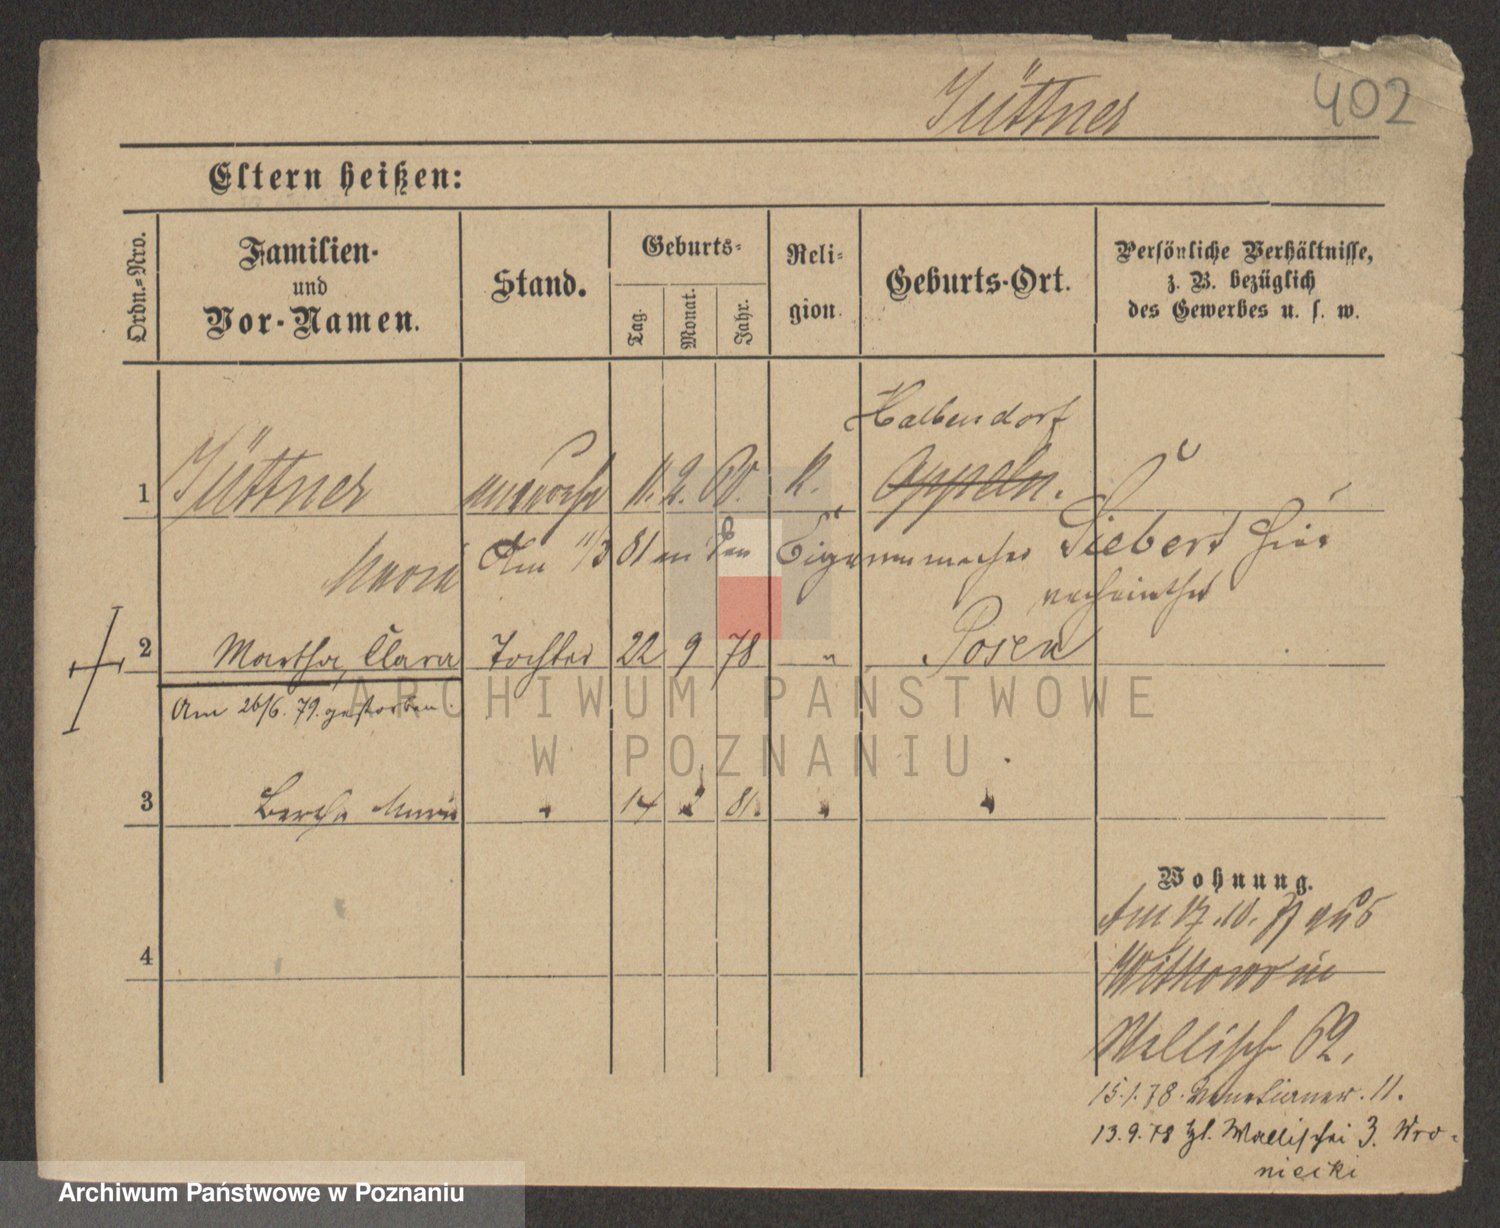 Jüttner 402
Eltern heißen:
Ordn.-Nro.
Familien-
und
Vor-Namen.
Stand.
Geburts-
Tag.
Monat.
Jahr.
Reli-
gion.
Geburts-Ort.
Persönliche Verhältnisse,
z. B. bezüglich
des Gewerbes u. s. w.
Halbendorf
1 Jüttner 2. K. Oppeln.
Maria Am 11/3 81 an den Cigarrenmacher Siebert hier
verheirathet
2 Martha, Clara Tochter 22 9 78 " Posen
Am 26/6. 79. gestorben.
3 Bertha Maria " 14 2 81. " "
4
Wohnung.
Am 17.10. 77 aus
Witkowo in
Wallisch 62.
15.1.78. Venetianer. 11.
13.9.78 Wallischei 3. Wro-
niecki
ARCHIWUM PAŃSTWOWE
W POZNANIU
Archiwum Państwowe w Poznaniu